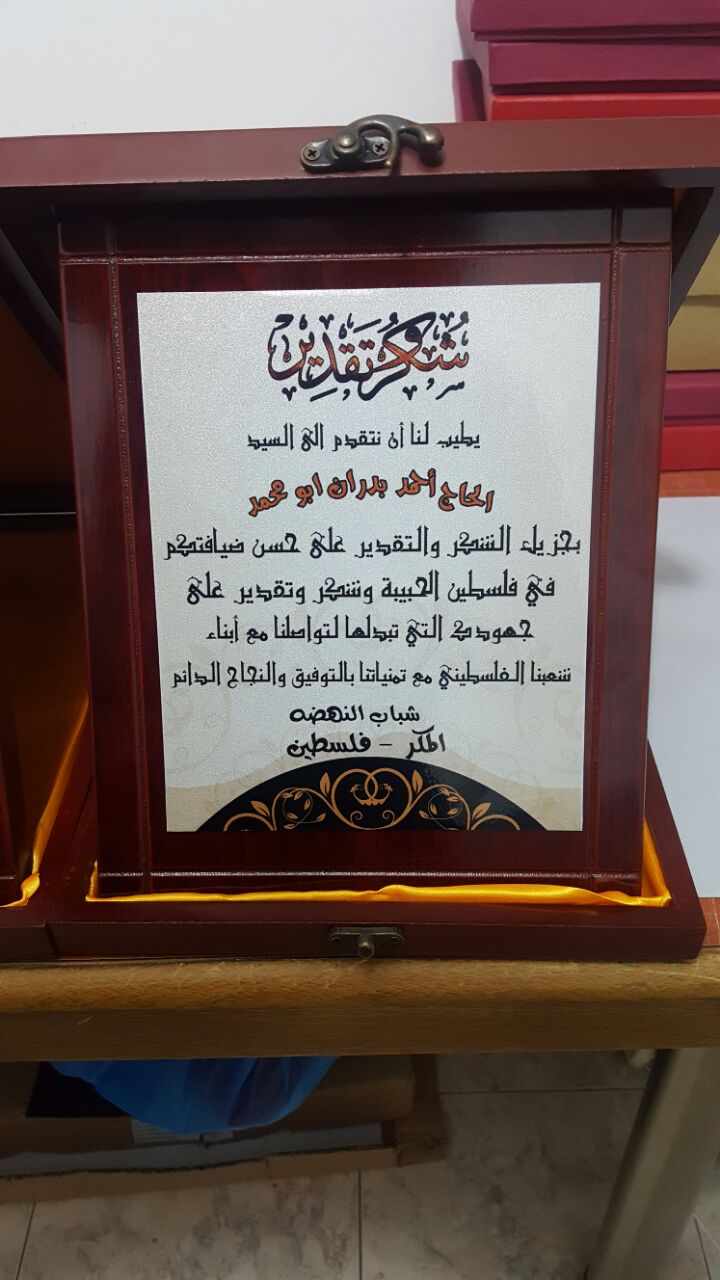 شُكر وتَقدِير
يطيب لنا أن نتقدم الى السيد
الحاج أحمد بدران ابو محمد
بجزيل الشكر والتقدير على حسن ضيافتكم
في فلسطين الحبيبة وشكر وتقدير على
جهودك التي تبدلها لتواصلنا مع أبناء
شعبنا الفلسطيني مع تمنياتنا بالتوفيق والنجاح الدائم
شباب النهضه
المكر - فلسطين